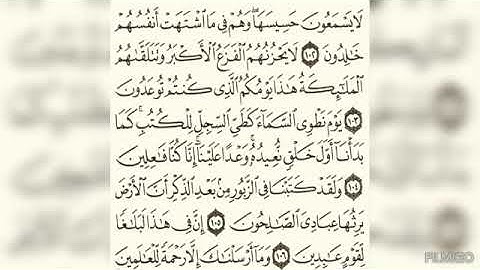 لَا يَسْمَعُونَ حَسِيسَهَا ۖ وَهُمْ فِي مَا اشْتَهَتْ أَنفُسُهُمْ
خَالِدُونَ ١٠٢ لَا يَحْزُنُهُمُ الْفَزَعُ الْأَكْبَرُ وَتَتَلَقَّاهُمُ
الْمَلَائِكَةُ هَٰذَا يَوْمُكُمُ الَّذِي كُنتُمْ تُوعَدُونَ
١٠٣ يَوْمَ نَطْوِي السَّمَاءَ كَطَيِّ السِّجِلِّ لِلْكُتُبِ ۚ كَمَا
بَدَأْنَا أَوَّلَ خَلْقٍ نُّعِيدُهُ ۚ وَعْدًا عَلَيْنَا ۚ إِنَّا كُنَّا فَاعِلِينَ
١٠٤ وَلَقَدْ كَتَبْنَا فِي الزَّبُورِ مِن بَعْدِ الذِّكْرِ أَنَّ الْأَرْضَ
يَرِثُهَا عِبَادِيَ الصَّالِحُونَ ١٠٥ إِنَّ فِي هَٰذَا لَبَلَاغًا
لِّقَوْمٍ عَابِدِينَ ١٠٦ وَمَا أَرْسَلْنَاكَ إِلَّا رَحْمَةً لِّلْعَالَمِينَ
FILMIGO